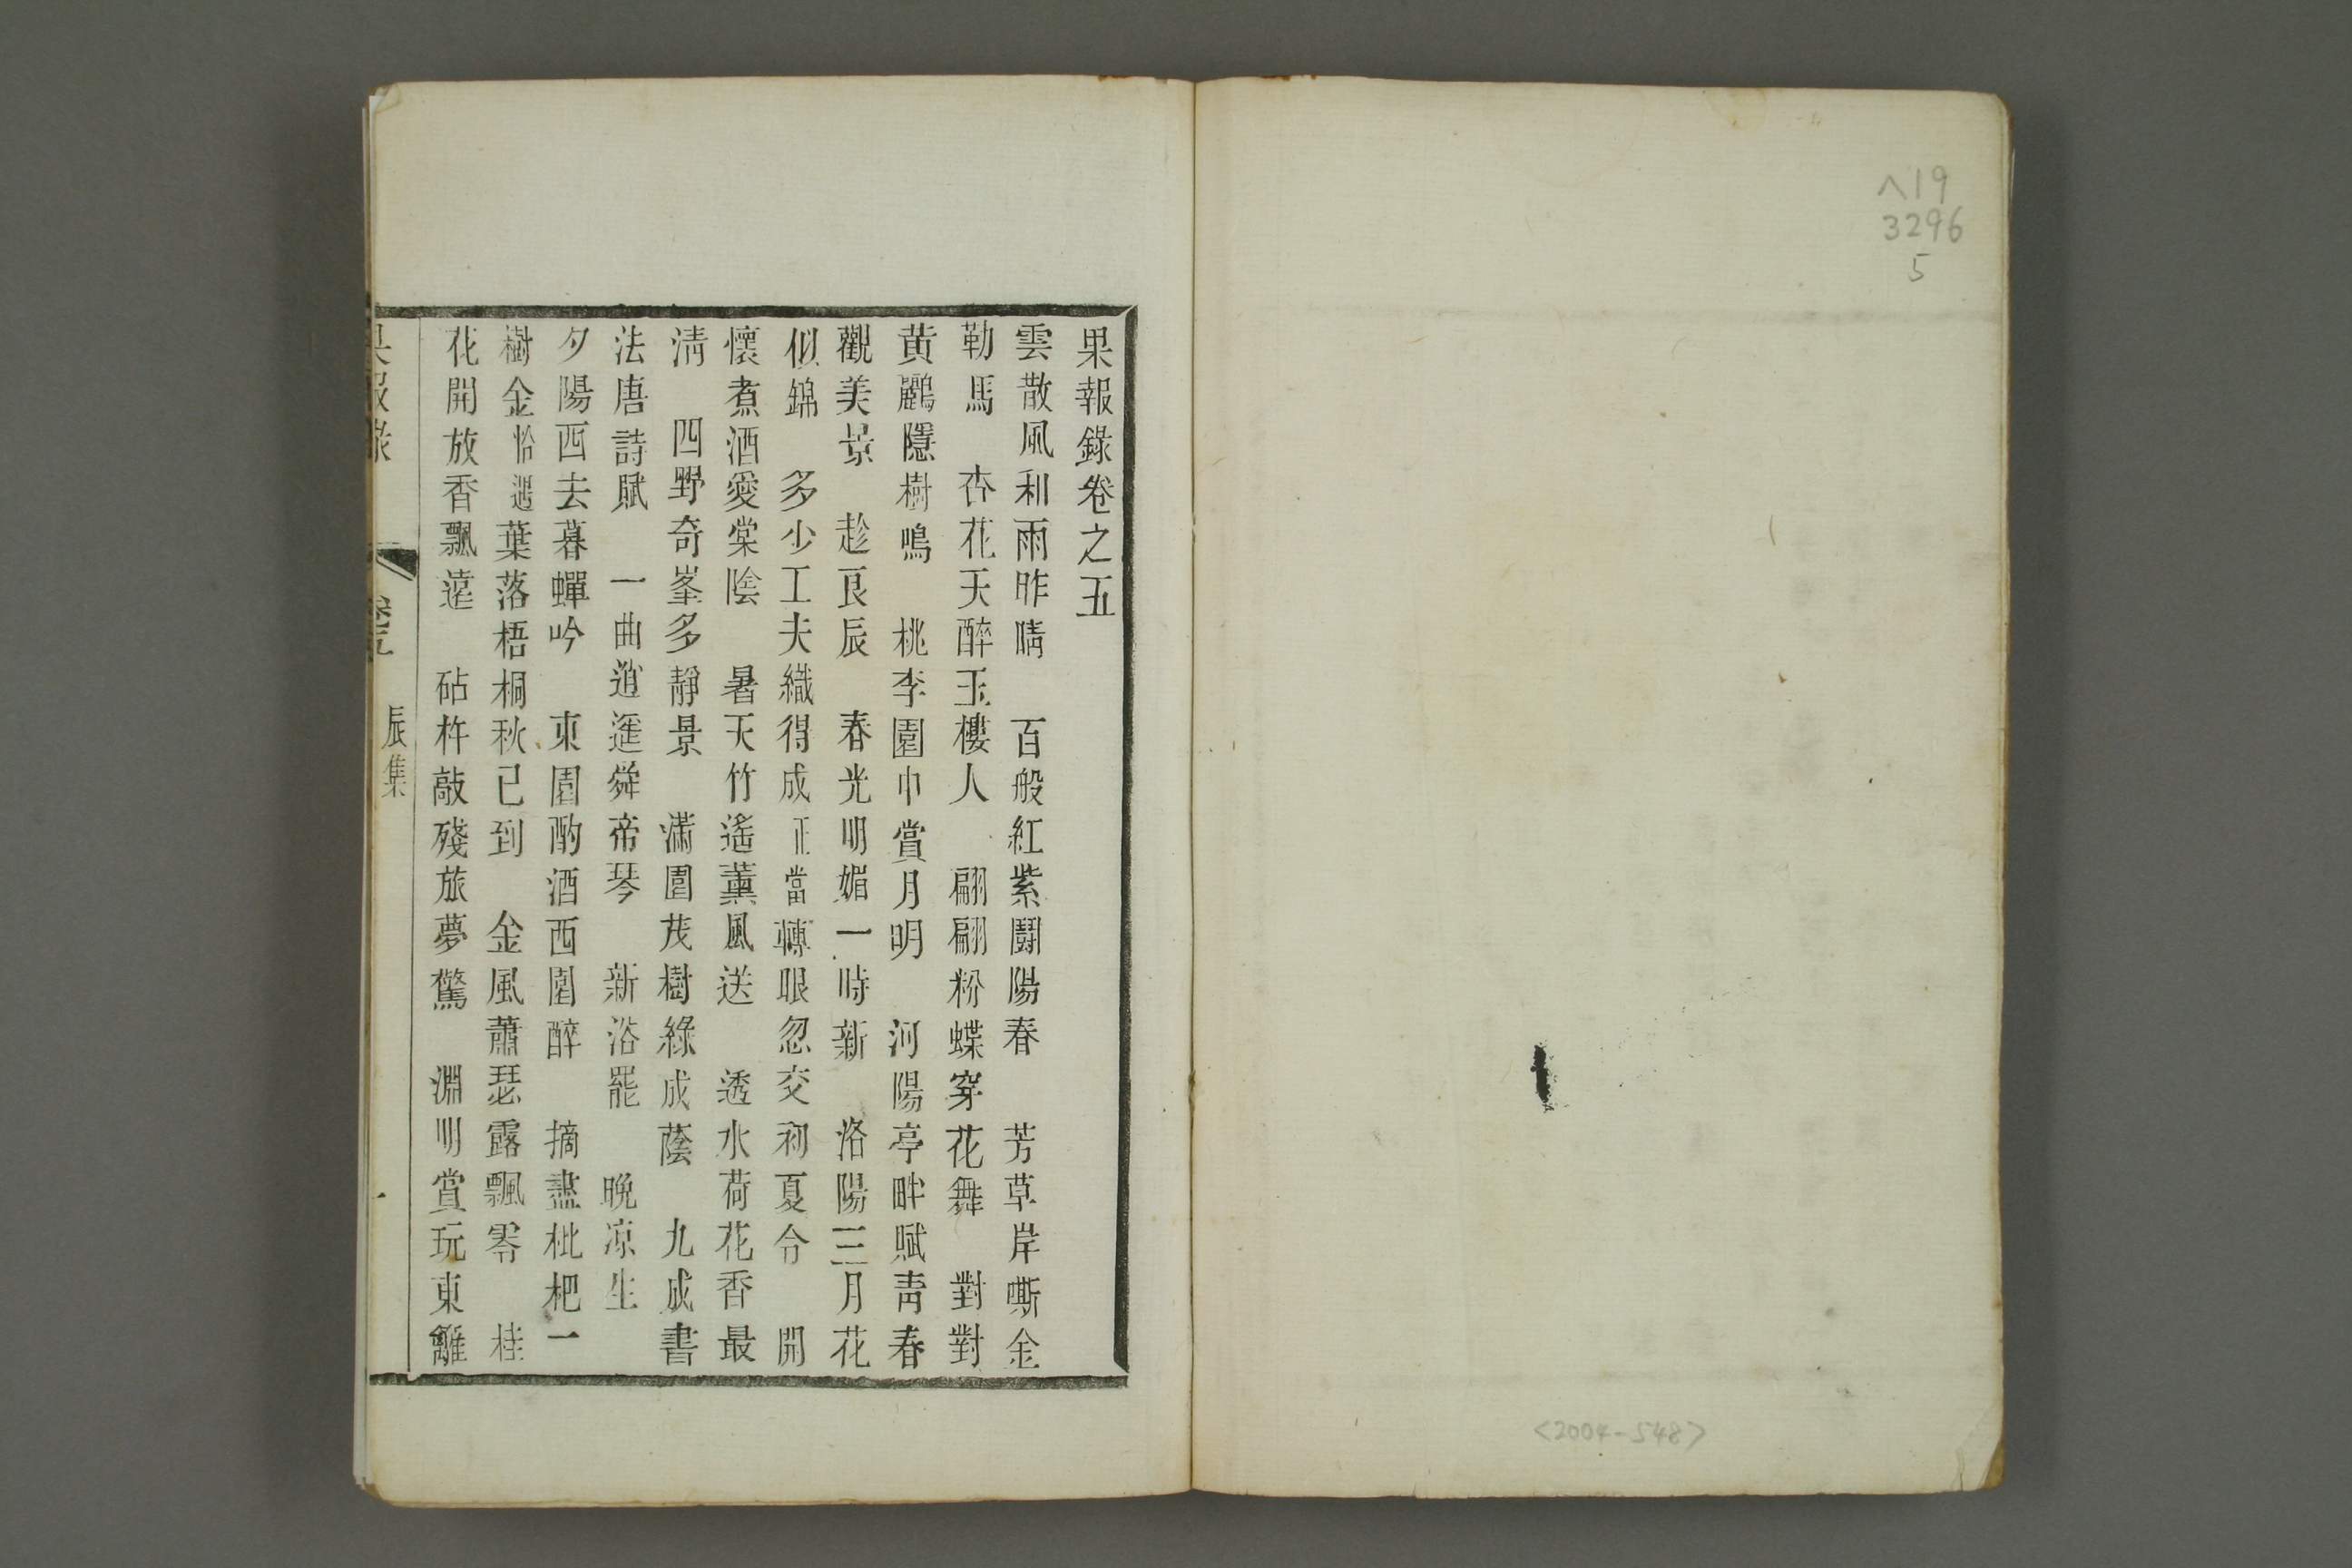 ヘ19
3296
5
<2004-548>
果報錄卷之五
雲散風和雨昨晴　百般紅紫鬪陽春　芳草岸嘶金
勒馬　杏花天醉玉樓人　翩翩粉蝶穿花舞　對對
黃鸝隱樹鳴　桃李園中賞月明　河陽亭畔賦靑春
觀美景　趁良辰　春光明媚一時新　洛陽三月花
似錦　多少工夫織得成　正當轉眼忽交初夏令　開
懷煮酒愛棠陰　暑天竹遙薰風送　透水荷花香最
淸　四野奇峯多靜景　滿園茂樹綠成蔭　九成書
法唐詩賦　一曲逍遙舜帝琴　新浴罷　晚凉生
夕陽西去暮蟬吟　東園酌酒西園醉　摘盡枇杷一
樹金　恰遇葉落梧桐秋已到　金風蕭瑟露飄零　桂
花開放香飄遠　砧杵敲殘旅夢驚　淵明賞玩東籬
果報錄　卷五　辰集　一